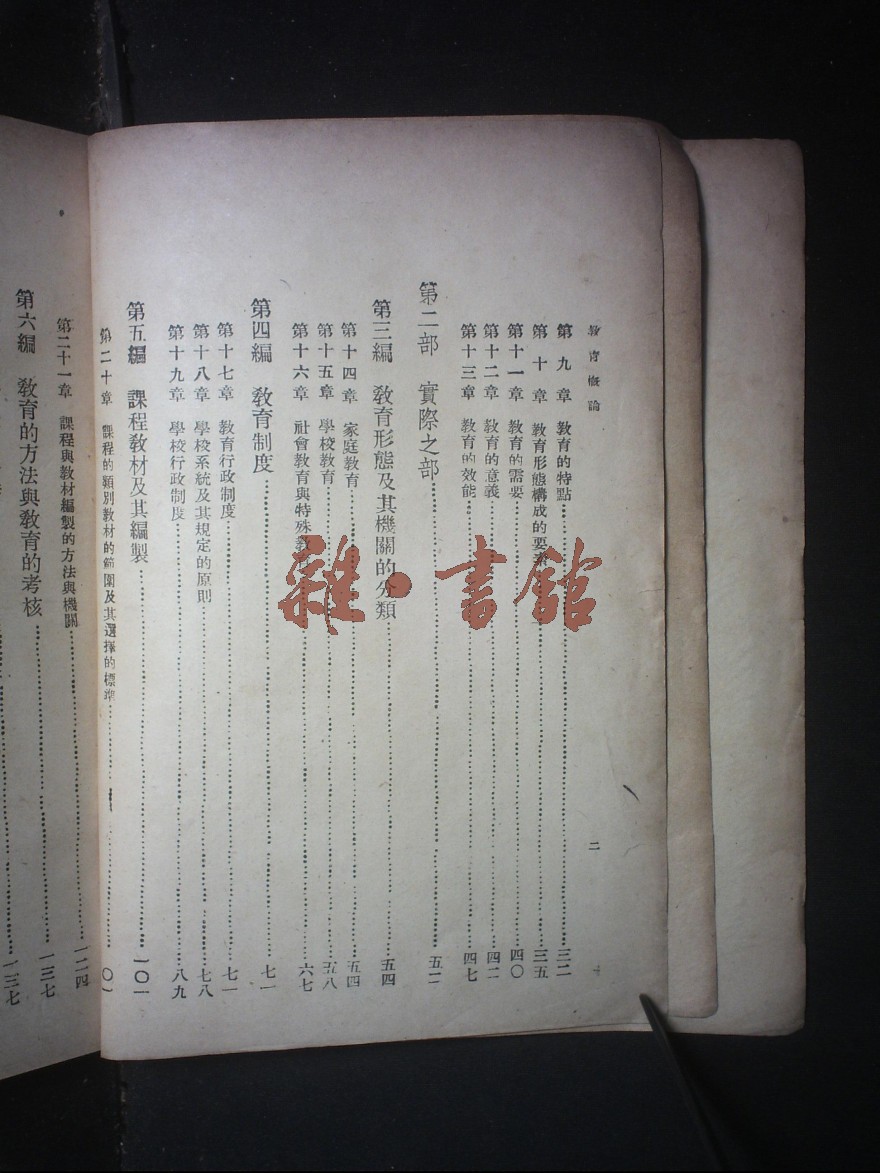 教育概論
二
第九章 教育的特點 三二
第十章 教育形態構成的要素 三五
第十一章 教育的需要 四〇
第十二章 教育的意義 四二
第十三章 教育的效能 四七
第二部 實際之部 五二
第三編 教育形態及其機關的分類 五四
第十四章 家庭教育 五四
第十五章 學校教育 五八
第十六章 社會教育與特殊教育 六七
第四編 教育制度 七一
第十七章 教育行政制度 七一
第十八章 學校系統及其規定的原則 七八
第十九章 學校行政制度 八九
第五編 課程教材及其編製 一〇一
第二十章 課程的類別教材的範圍及其選擇的標準 〇一
第二十一章 課程與教材編製的方法與機關 一二四
第六編 教育的方法與教育的考核 一三七
一三七
雜·書館